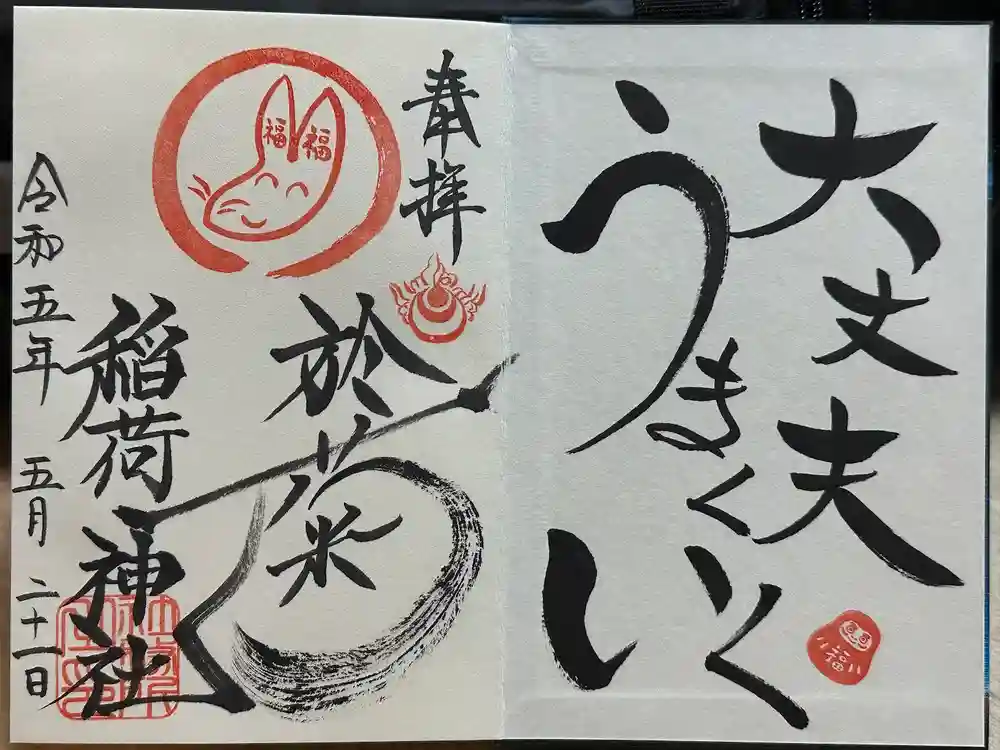 大丈夫
うまくいく
奉拝
於菊
稲荷神社
令和五年 五月 二十一日
福
福
福